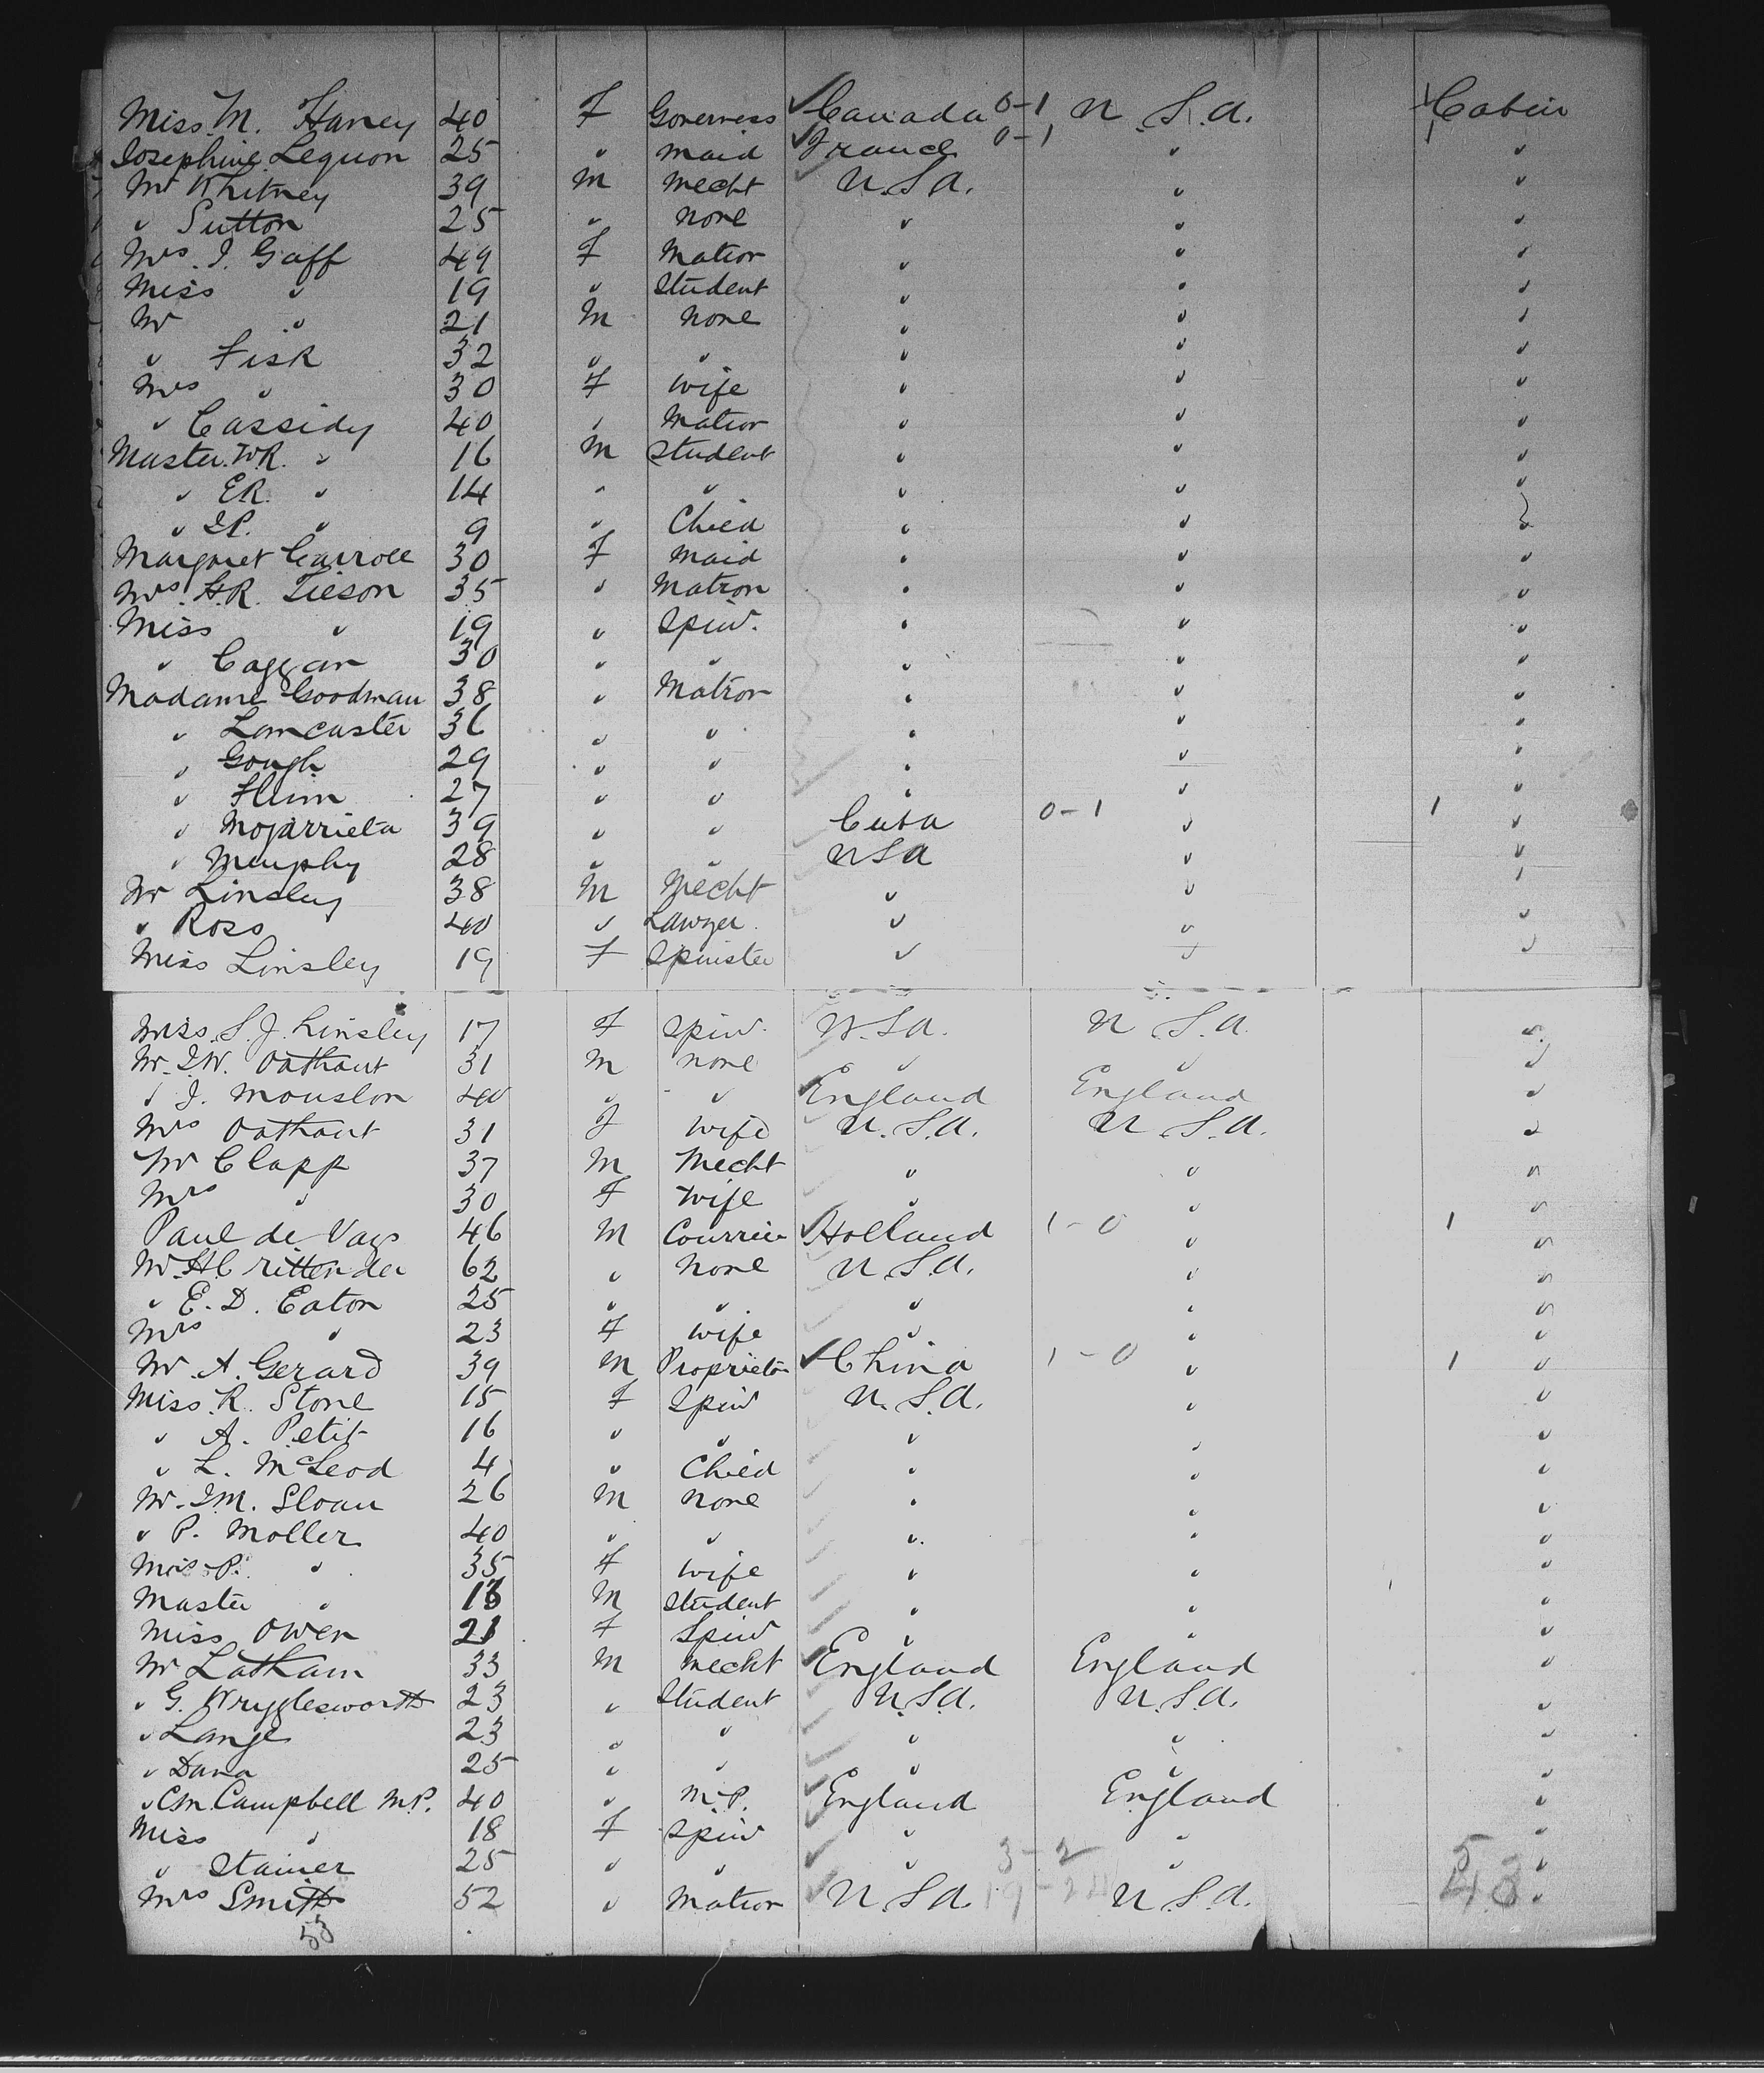 Miss M. Haney 40 F Governess Canada 0-1 U.S.A. 1 Cabin
Josephine Lequon 25 " maid France 0-1 " 1 "
Mr Whitney 39 M Mecht U.S.A. " "
" Sutton 25 " none " " "
Mrs. J. Gaff 49 F Matron " " "
Miss " 19 " Student " " "
Mr " 21 M none " " "
" Fisk 32 " " " " "
Mrs " 30 F wife " " "
" Cassidy 40 " Matron " " "
Master W.R. " 16 M Student " " "
" E.R. " 14 " " " " "
" J.P. " 9 " Child " " "
Margaret Carroll 30 F maid " " "
Mrs. H.R. Tieson 35 " Matron " " "
Miss " 19 " Spin. " " "
" Caggan 30 " " " " "
Madame Goodman 38 " Matron " " "
" Lancaster 36 " " " " "
" Gough 29 " " " " "
" Flinn 27 " " " " "
" Mojarrieta 39 " " Cuba 0-1 " 1 "
" Murphy 28 " " USA " "
Mr Linsley 38 M Mecht " " "
" Ross 40 " Lawyer " " "
Miss Linsley 19 F Spinster " " "
Miss. S. J. Linsley 17 F Spin. U.S.A. U.S.A. "
Mr. J.W. Oothout 31 M none " " "
" J. Mouslon 40 " " England England "
Mrs Oothout 31 F wife U.S.A. U.S.A. "
Mr Clapp 37 M Mecht " " "
Mrs " 30 F Wife " " "
Paul de Vays 46 M Courrier Holland 1-0 " 1 "
Mr. H. Crittender 62 " none U.S.A. " "
" E. D. Eaton 25 " " " " "
Mrs " 23 F wife " " "
Mr A. Gerard 39 M Proprietor China 1-0 " 1 "
Miss. R. Stone 15 F Spin U.S.A. " "
" A. Petit 16 " " " " "
" L. McLeod 4 " Child " " "
Mr. J.M. Sloan 26 M none " " "
" P. Moller 40 " " " " "
Mrs P. " 35 F wife " " "
Master " M Student " " "
Miss Owen 21 F Spin " " "
Mr Latham 33 M mecht England England "
" G. Wrygglesworth 23 " Student U.S.A. U.S.A. "
" Lange 23 " " " " "
" Dana 25 " " " " "
" C.M. Campbell M.P. 40 " M.P. England England "
Miss " 18 F Spin " " "
" Stainer 25 " " " 3-2 " 5 "
Mrs Smith 52 " Matron U.S.A. U.S.A. 48 "
53